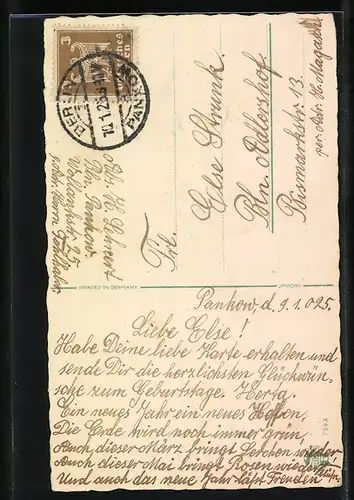 3
Deutsches
BERLIN
10.1.25.
PANKOW
Abs. H. Lehnert
Bln. Pankow
Wollankstr. 25
Frl.
Else Strunk.
Bln. Adlershof
Bismarckstr. 13.
per Adr. H. Magatzki
PRINTED IN GERMANY.
IMPORT.
Pankow, d. 9.1.025.
Liebe Else!
Habe Deine liebe Karte erhalten und
sende Dir die herzlichsten Glückwün-
sche zum Geburtstage. Herta.
Ein neues Jahr ein neues Hoffen,
Die Erde wird noch immer grün,
Auch dieser März bringt Lerchen wieder
Auch dieser Mai bringt Rosen wieder
Und auch das neue Jahr läßt Freuden
blühn.